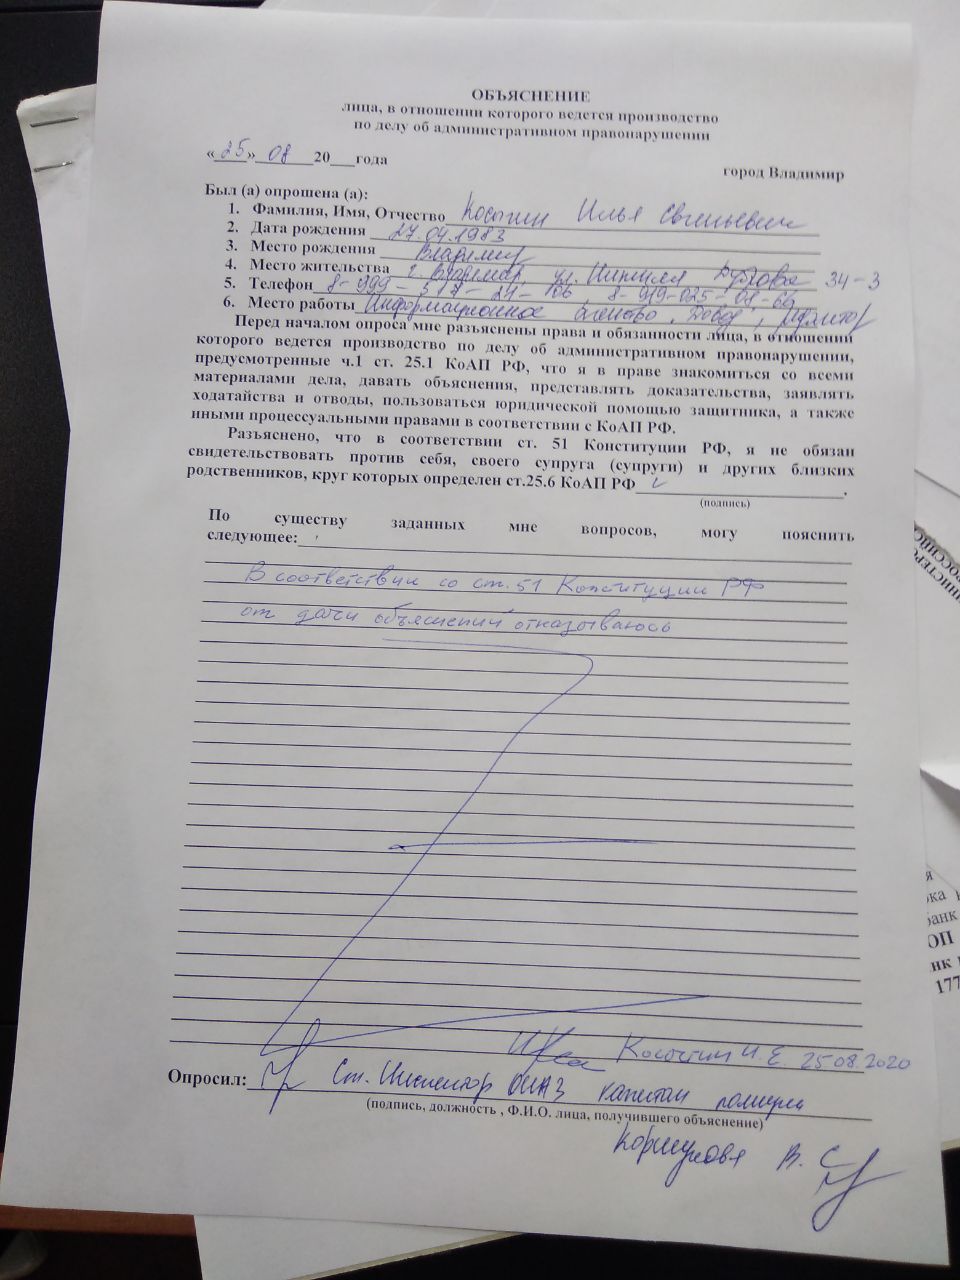 ОБЪЯСНЕНИЕ
лица, в отношении которого ведется производство
по делу об административном правонарушении
«25» 08 20___года
город Владимир
Был (а) опрошена (а):
1. Фамилия, Имя, Отчество Косыгин Илья Евгеньевич
2. Дата рождения 27.04.1983
3. Место рождения Владимир
4. Место жительства г. Владимир, ул. Нижняя Дуброва 34-3
5. Телефон 8-999- 8-919-025-01-66
6. Место работы Информационное агенство "Довод",
Перед началом опроса мне разъяснены права и обязанности лица, в отношении
которого ведется производство по делу об административном правонарушении,
предусмотренные ч.1 ст. 25.1 КоАП РФ, что я в праве знакомиться со всеми
материалами дела, давать объяснения, представлять доказательства, заявлять
ходатайства и отводы, пользоваться юридической помощью защитника, а также
иными процессуальными правами в соответствии с КоАП РФ.
Разъяснено, что в соответствии ст. 51 Конституции РФ, я не обязан
свидетельствовать против себя, своего супруга (супруги) и других близких
родственников, круг которых определен ст.25.6 КоАП РФ
(подпись)
По существу заданных мне вопросов, могу пояснить
следующее:
В соответствии со ст. 51 Конституции РФ
от дачи объяснений отказываюсь
И.Е. 25.08.2020
Опросил: Ст. Инспектор ОИАЗ капитан полиции
(подпись, должность , Ф.И.О. лица, получившего объяснение)
Коршунова В. С.